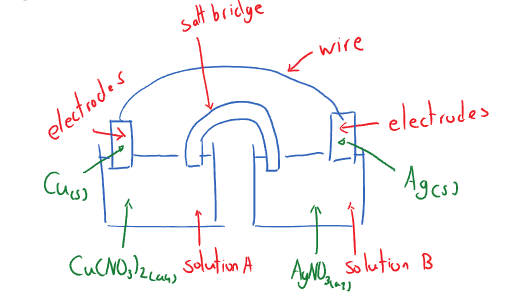 salt bridge
wire
electrodes
electrodes
Cu(s)
Ag(s)
Cu(NO3)2(aq)
solution A
AgNO3(aq)
solution B